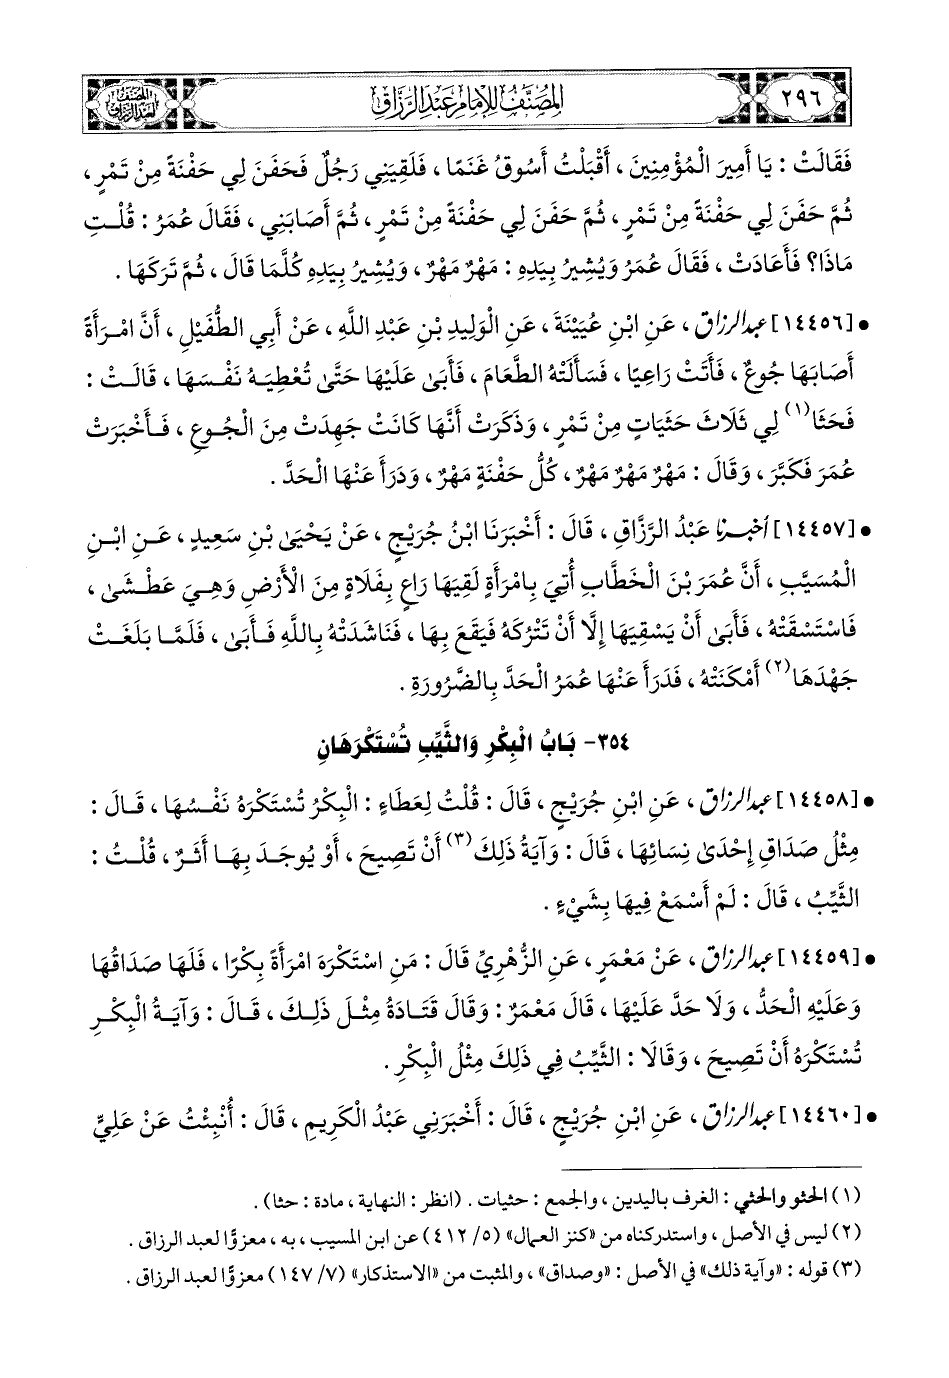 المصنف لعبد الرزاق
المُصَنَّفُ لِلإِمَامِ عَبْدِ الرَّزَّاقِ
٢٩٦
فَقَالَتْ : يَا أَمِيرَ الْمُؤْمِنِينَ ، أَقْبَلْتُ أَسُوقُ غَنَمًا ، فَلَقِيَنِي رَجُلٌ فَحَفَنَ لِي حَفْنَةً مِنْ تَمْرٍ ،
ثُمَّ حَفَنَ لِي حَفْنَةً مِنْ تَمْرٍ ، ثُمَّ حَفَنَ لِي حَفْنَةً مِنْ تَمْرٍ ، ثُمَّ أَصَابَنِي ، فَقَالَ عُمَرُ : قُلْتِ
مَاذَا؟ فَأَعَادَتْ ، فَقَالَ عُمَرُ وَيُشِيرُ بِيَدِهِ : مَهْرٌ مَهْرٌ ، وَيُشِيرُ بِيَدِهِ كُلَّمَا قَالَ ، ثُمَّ تَرَكَهَا .
• [١٤٤٥٦] عبد الرزاق ، عَنِ ابْنِ عُيَيْنَةَ ، عَنِ الْوَلِيدِ بْنِ عَبْدِ اللَّهِ ، عَنْ أَبِي الطُّفَيْلِ ، أَنَّ امْرَأَةً
أَصَابَهَا جُوعٌ ، فَأَتَتْ رَاعِيًا ، فَسَأَلَتْهُ الطَّعَامَ ، فَأَبَى عَلَيْهَا حَتَّى تُعْطِيَهُ نَفْسَهَا ، قَالَتْ :
فَحَثَا(١) لِي ثَلَاثَ حَثَيَاتٍ مِنْ تَمْرٍ ، وَذَكَرَتْ أَنَّهَا كَانَتْ جَهِدَتْ مِنَ الْجُوعِ ، فَأَخْبَرَتْ
عُمَرَ فَكَبَّرَ ، وَقَالَ : مَهْرٌ مَهْرٌ مَهْرٌ ، كُلُّ حَفْنَةٍ مَهْرٌ ، وَدَرَأَ عَنْهَا الْحَدَّ .
• [١٤٤٥٧] أخبرنا عَبْدُ الرَّزَّاقِ ، قَالَ : أَخْبَرَنَا ابْنُ جُرَيْجٍ ، عَنْ يَحْيَى بْنِ سَعِيدٍ ، عَنِ ابْنِ
الْمُسَيَّبِ ، أَنَّ عُمَرَ بْنَ الْخَطَّابِ أُتِيَ بِامْرَأَةٍ لَقِيَهَا رَاعٍ بِفَلَاةٍ مِنَ الْأَرْضِ وَهِيَ عَطْشَى ،
فَاسْتَسْقَتْهُ ، فَأَبَى أَنْ يَسْقِيَهَا إِلَّا أَنْ تَتْرُكَهُ فَيَقَعَ بِهَا ، فَنَاشَدَتْهُ بِاللَّهِ فَأَبَى ، فَلَمَّا بَلَغَتْ
جَهْدَهَا(٢) أَمْكَنَتْهُ ، فَدَرَأَ عَنْهَا عُمَرُ الْحَدَّ بِالضَّرُورَةِ .
٣٥٤- بَابُ الْبِكْرِ وَالثَّيِّبِ تُسْتَكْرَهَانِ
• [١٤٤٥٨] عبد الرزاق ، عَنِ ابْنِ جُرَيْجٍ ، قَالَ : قُلْتُ لِعَطَاءٍ : الْبِكْرُ تُسْتَكْرَهُ نَفْسُهَا ، قَالَ :
مِثْلُ صَدَاقِ إِحْدَى نِسَائِهَا ، قَالَ : وَآيَةُ ذَلِكَ(٣) أَنْ تَصِيحَ ، أَوْ يُوجَدَ بِهَا أَثَرٌ ، قُلْتُ :
الثَّيِّبُ ، قَالَ : لَمْ أَسْمَعْ فِيهَا بِشَيْءٍ .
• [١٤٤٥٩] عبد الرزاق ، عَنْ مَعْمَرٍ ، عَنِ الزُّهْرِيِّ قَالَ : مَنِ اسْتَكْرَهَ امْرَأَةً بِكْرًا ، فَلَهَا صَدَاقُهَا
وَعَلَيْهِ الْحَدُّ ، وَلَا حَدَّ عَلَيْهَا ، قَالَ مَعْمَرٌ : وَقَالَ قَتَادَةُ مِثْلَ ذَلِكَ ، قَالَ : وَآيَةُ الْبِكْرِ
تُسْتَكْرَهُ أَنْ تَصِيحَ ، وَقَالَا : الثَّيِّبُ فِي ذَلِكَ مِثْلُ الْبِكْرِ .
• [١٤٤٦٠] عبد الرزاق ، عَنِ ابْنِ جُرَيْجٍ ، قَالَ : أَخْبَرَنِي عَبْدُ الْكَرِيمِ ، قَالَ : أُنْبِئْتُ عَنْ عَلِيٍّ
(١) الحثو والحثي : الغرف باليدين ، والجمع : حثيات . (انظر : النهاية ، مادة : حثا) .
(٢) ليس في الأصل ، واستدركناه من «كنز العمال» (٥/ ٤١٢) عن ابن المسيب ، به ، معزوًّا لعبد الرزاق .
(٣) قوله : «وآية ذلك» في الأصل : «وصداق» ، والمثبت من «الاستذكار» (٧/ ١٤٧) معزوًّا لعبد الرزاق .